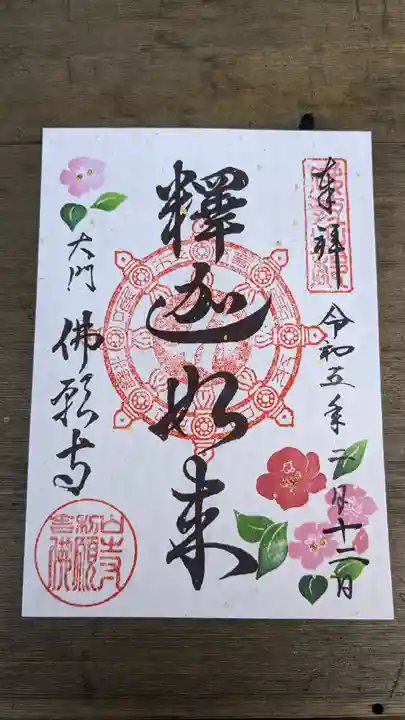 奉拝
令和五年二月十二日
釋迦如来
大門
佛願寺